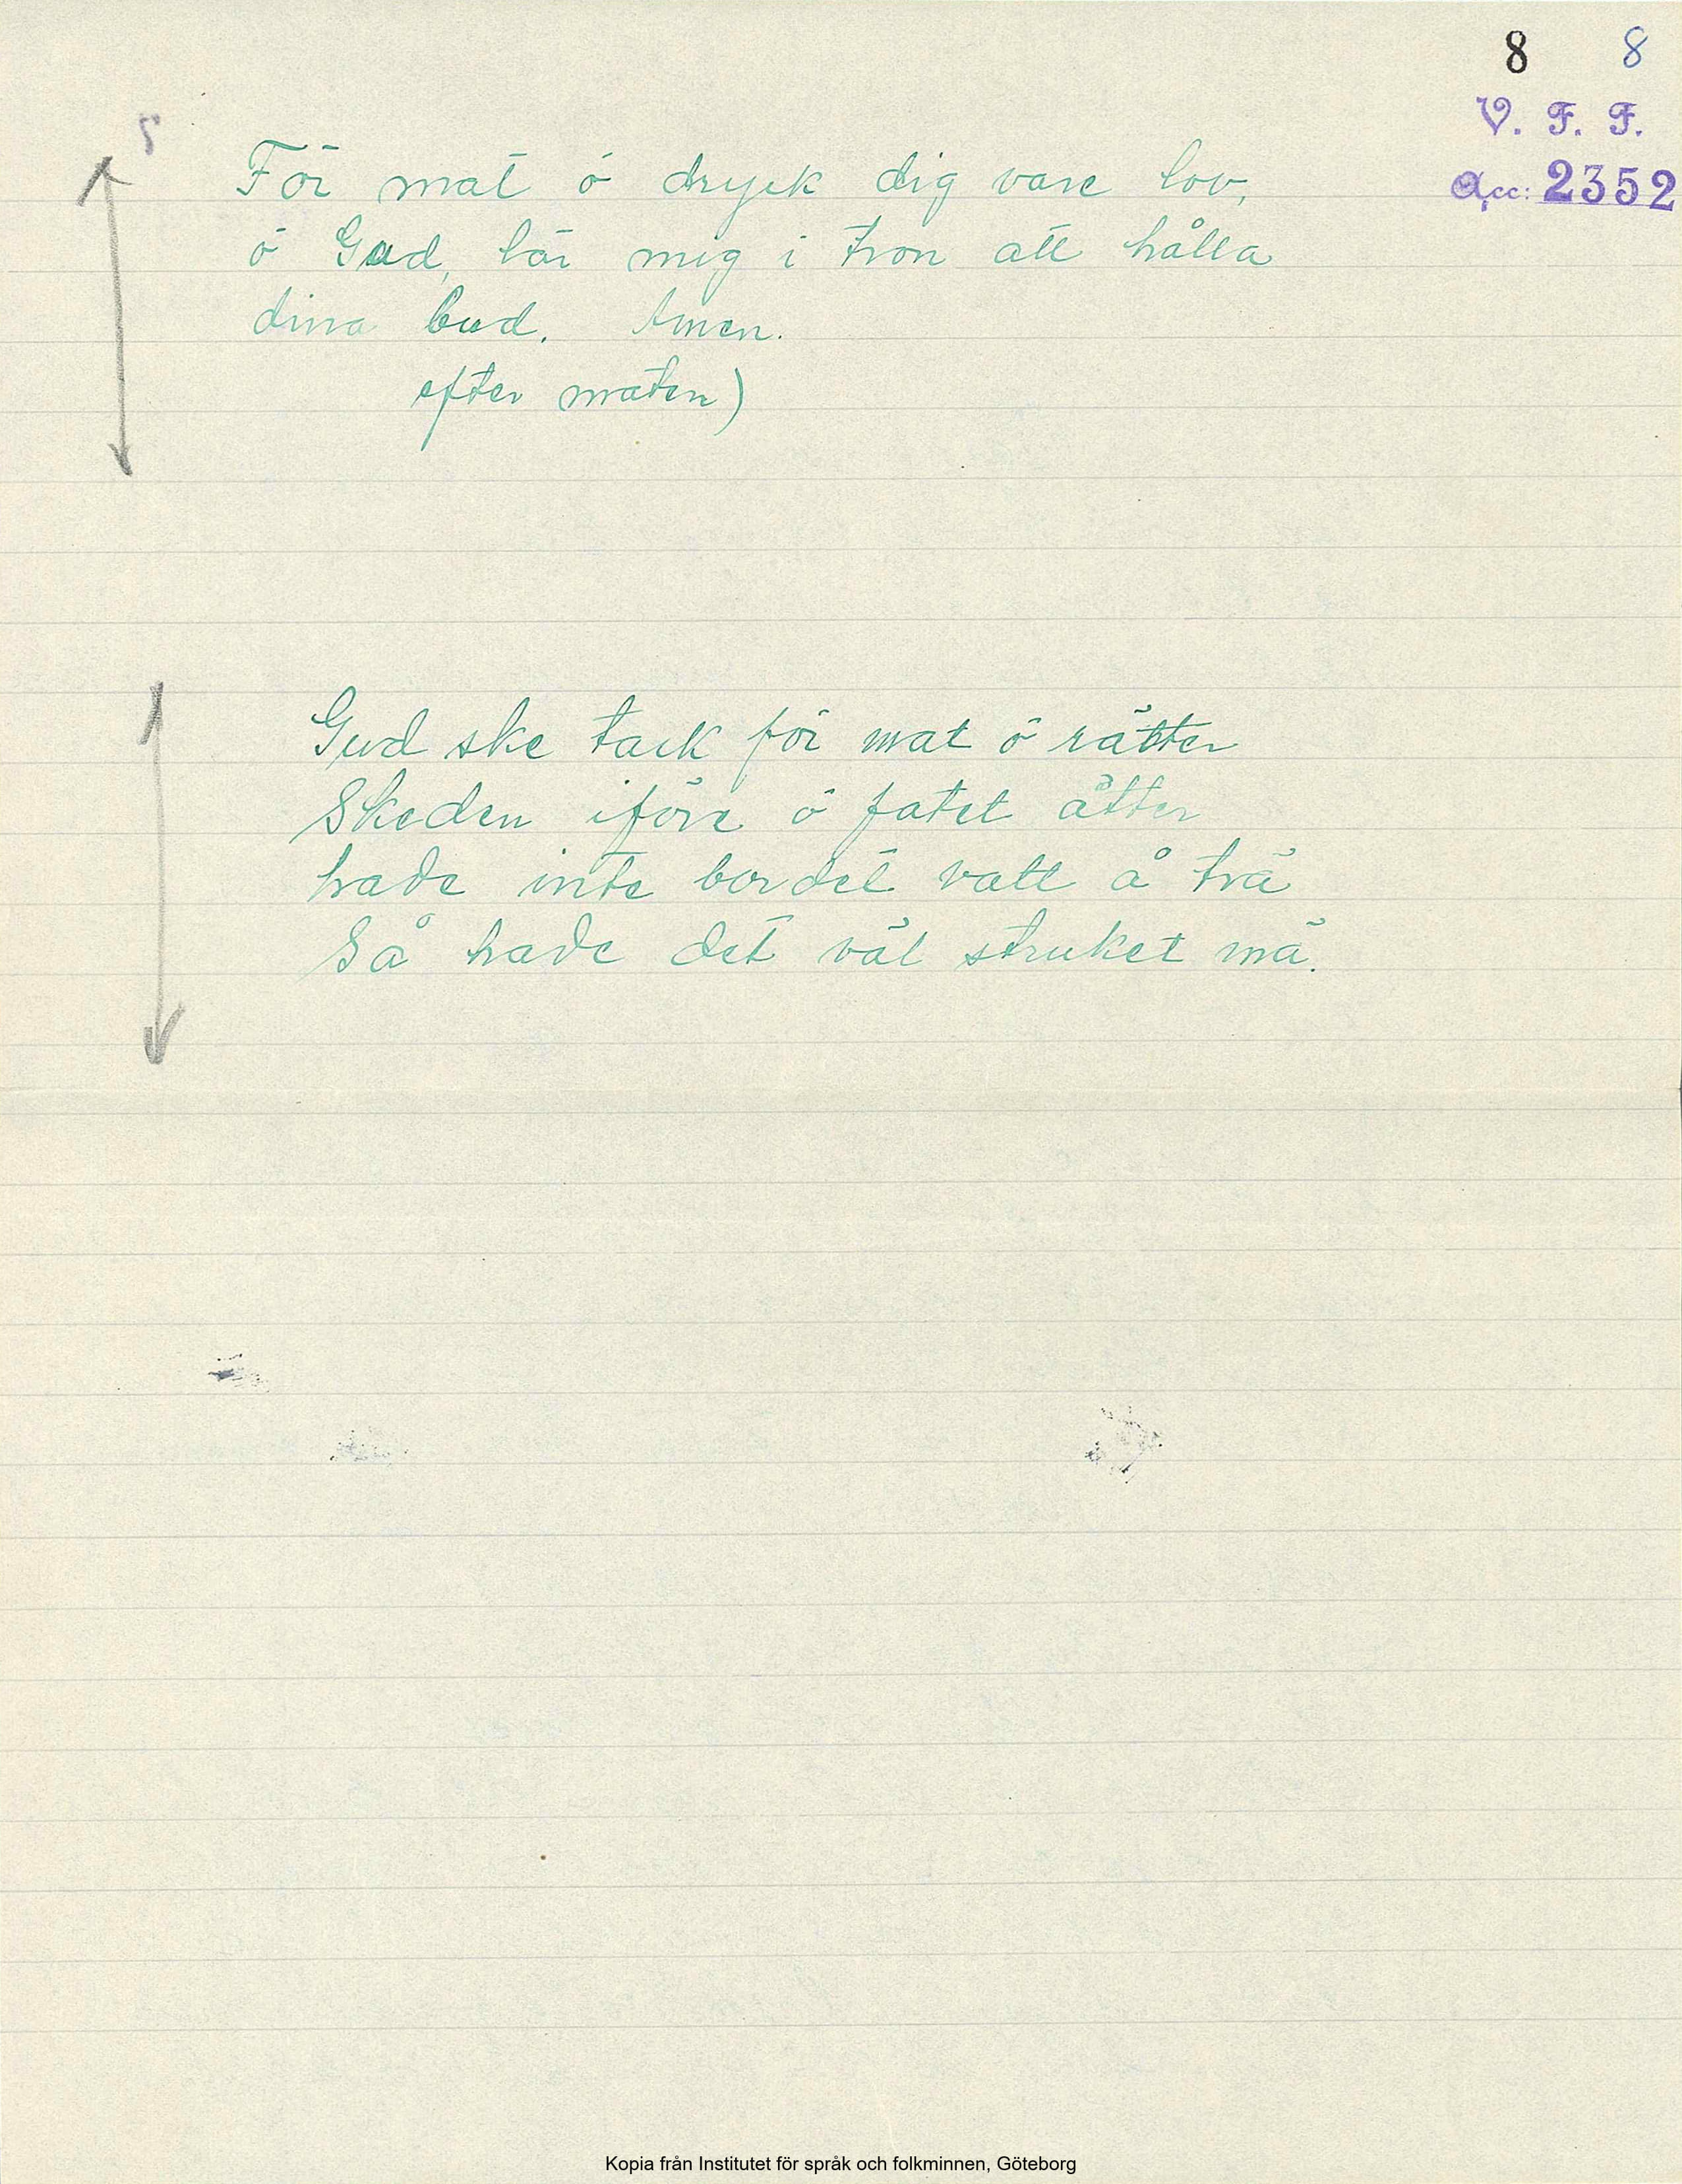 8 8
V. F. F.
Acc: 2352
För mat ö dryck dig vare lov,
ö Gud, lär mig i tron att hålla
dina bud. Amen.
efter maten)
Gud ske tack för mat ö rätter
Skeden iföre ö fatet ätter
hade inte bordet vatt å trä
Så hade det väl struket mä.
Kopia från Institutet för språk och folkminnen, Göteborg